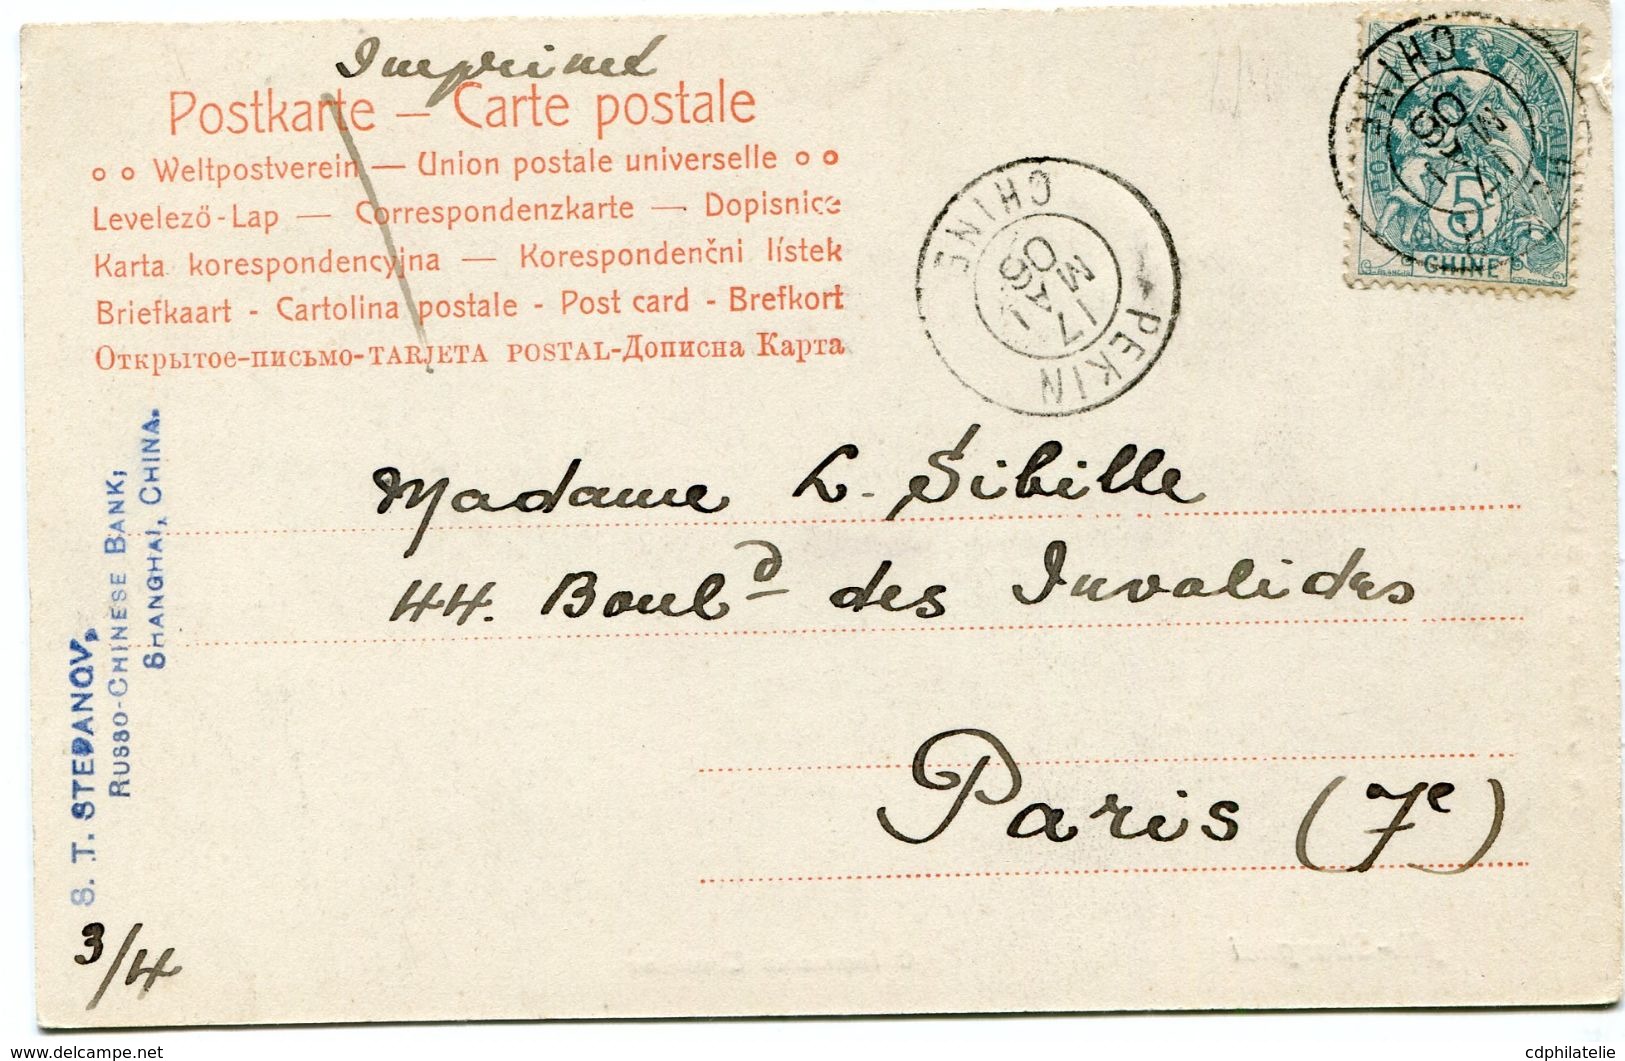 Imprimé
Postkarte — Carte postale
Weltpostverein — Union postale universelle
Levelező-Lap — Correspondenzkarte — Dopisnice
Karta korespondencyjna — Korespondenčni lístek
Briefkaart - Cartolina postale - Post card - Brefkort
Открытое-письмо-TARJETA POSTAL-Дописна Карта
POSTE FRANÇAISE
5
CHINE
CHINE
06
CHINE
PEKIN
17
M
06
S. T. STEPANOV,
RUSSO-CHINESE BANK,
SHANGHAI, CHINA.
Madame L. Sibille
44. Boul d des Invalides
Paris (7e)
3/4
www.delcampe.net
cdphilatelie